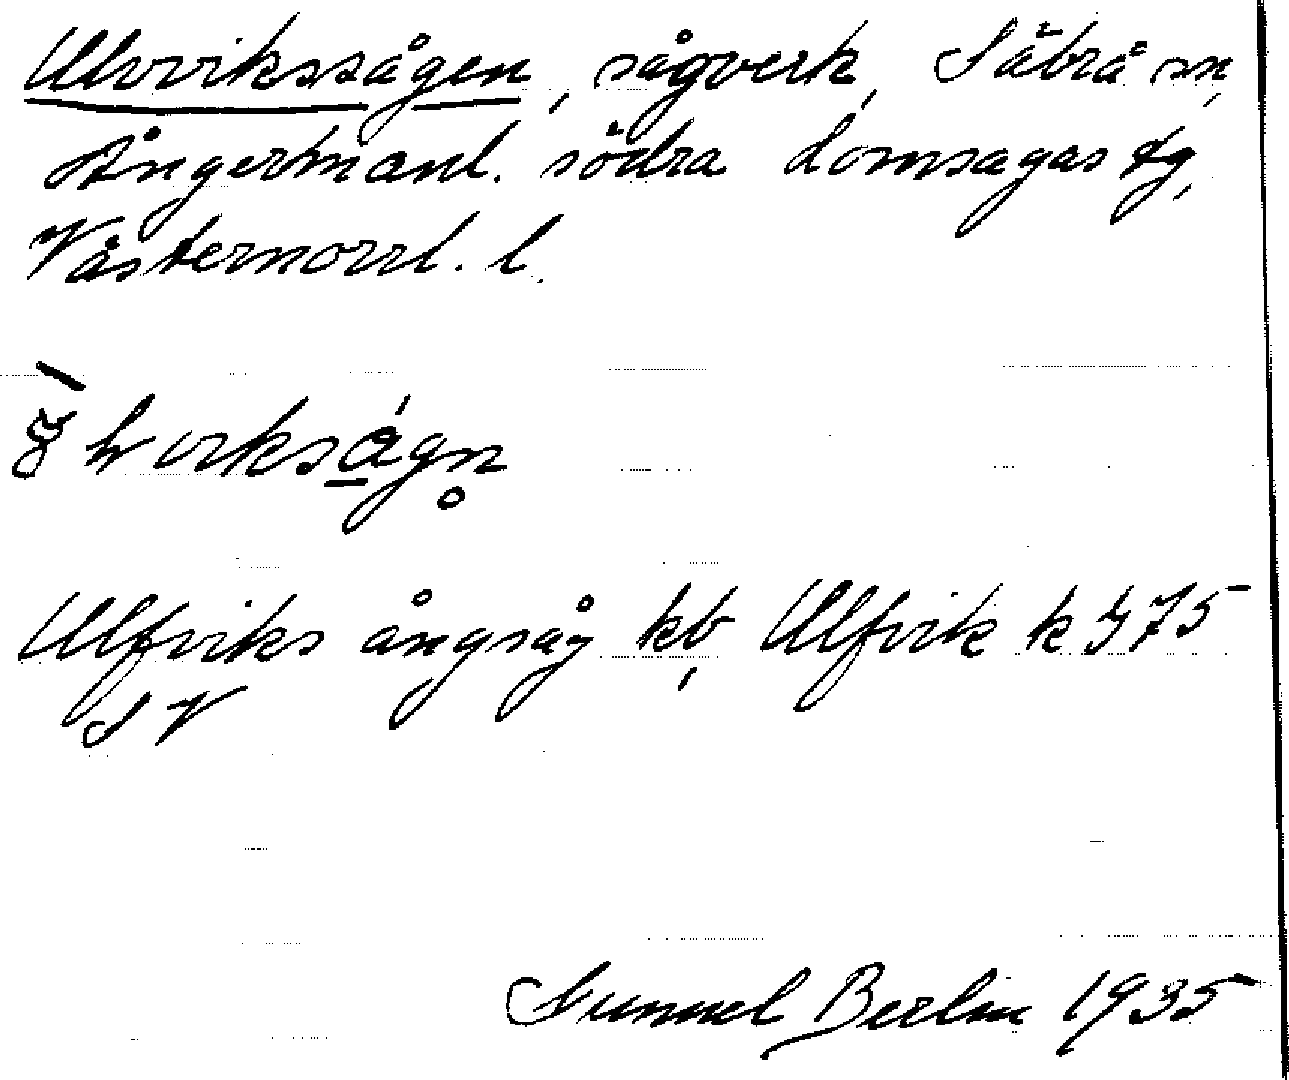 Ulvvikssågen, sågverk, Säbrå sn,
Ångermanl. södra domsagas tg,
Västernorrl. l.
Ulfviks ångsåg kb, Ulfvik k G 75
SV
Gunnel Berlin 1935